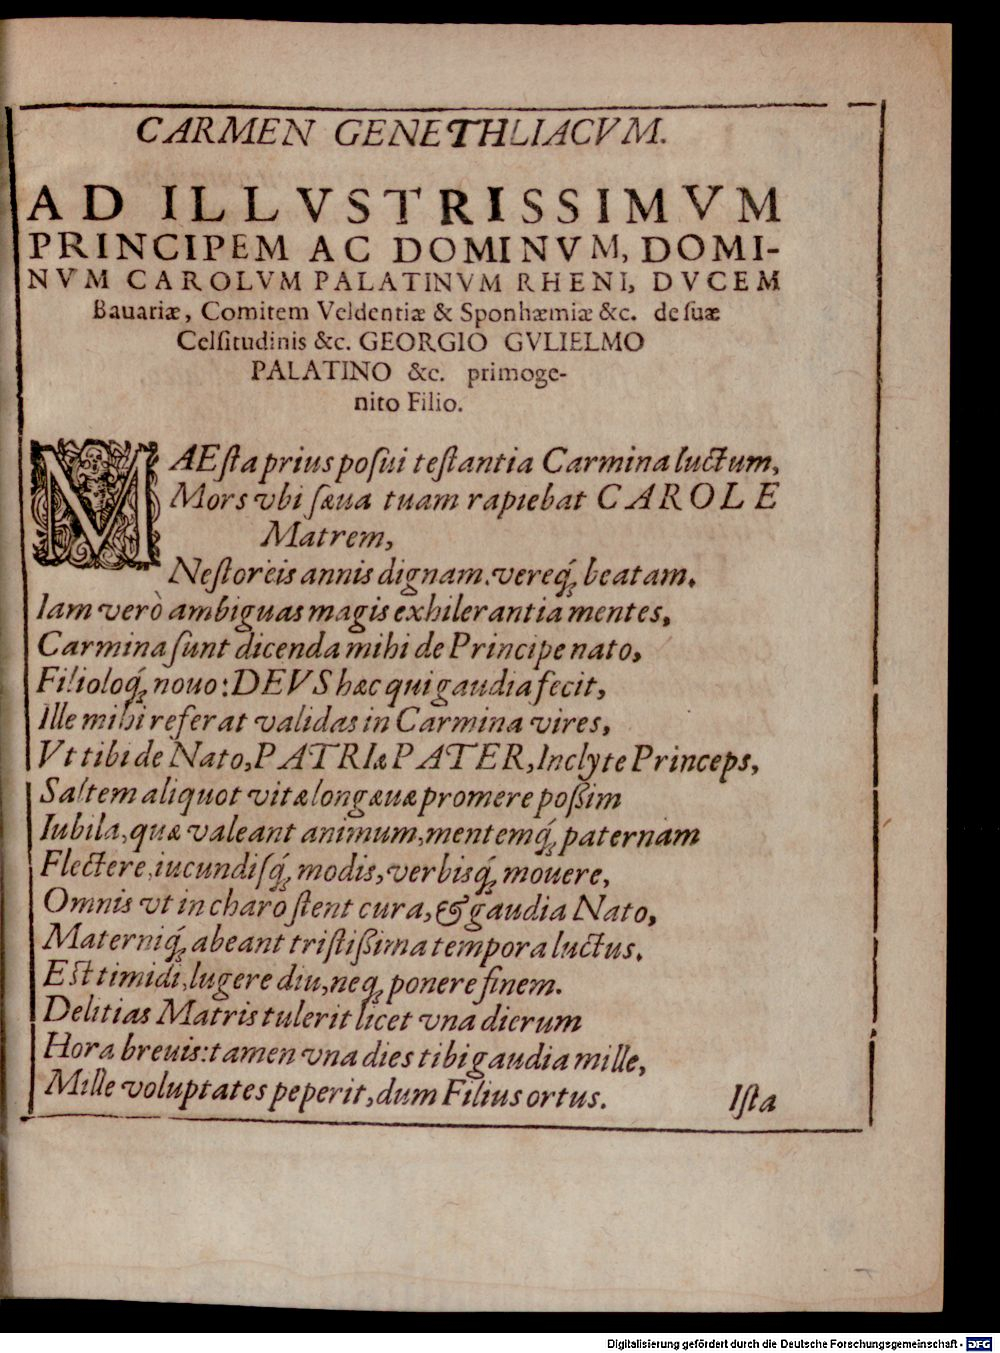 CARMEN GENETHLIACVM.
AD ILLVSTRISSIMVM
PRINCIPEM AC DOMINVM, DOMI-
NVM CAROLVM PALATINVM RHENI, DVCEM
Bauariæ, Comitem Veldentiæ & Sponhæmiæ &c. de ſuæ
Celſitudinis &c. GEORGIO GVLIELMO
PALATINO &c. primoge-
nito Filio.
MAEſta prius poſui teſtantia Carmina luctum,
Mors vbi ſæua tuam rapiebat CAROLE
Matrem,
Neſtoreis annis dignam, vereq́ꝫ beatam.
Iam verò ambiguas magis exhilerantia mentes,
Carmina ſunt dicenda mihi de Principe nato,
Filioloq́ꝫ nouo: DEVS hæc qui gaudia fecit,
Ille mihi referat validas in Carmina vires,
Vt tibi de Nato, PATRIæ PATER, Inclyte Princeps,
Saltem aliquot vitæ longæuæ promere poßim
Iubila, quæ valeant animum, mentemq́ꝫ paternam
Flectere, iucundiſq́ꝫ modis, verbisq́ꝫ mouere,
Omnis vt in charo ſtent cura, & gaudia Nato,
Materniq́ꝫ abeant triſtißima tempora luctus.
Eſt timidi, lugere diu, neqꝫ ponere finem.
Delitias Matris tulerit licet vna dierum
Hora breuis: tamen vna dies tibi gaudia mille,
Mille voluptates peperit, dum Filius ortus.
Iſta
Digitalisierung gefördert durch die Deutsche Forschungsgemeinschaft - DFG